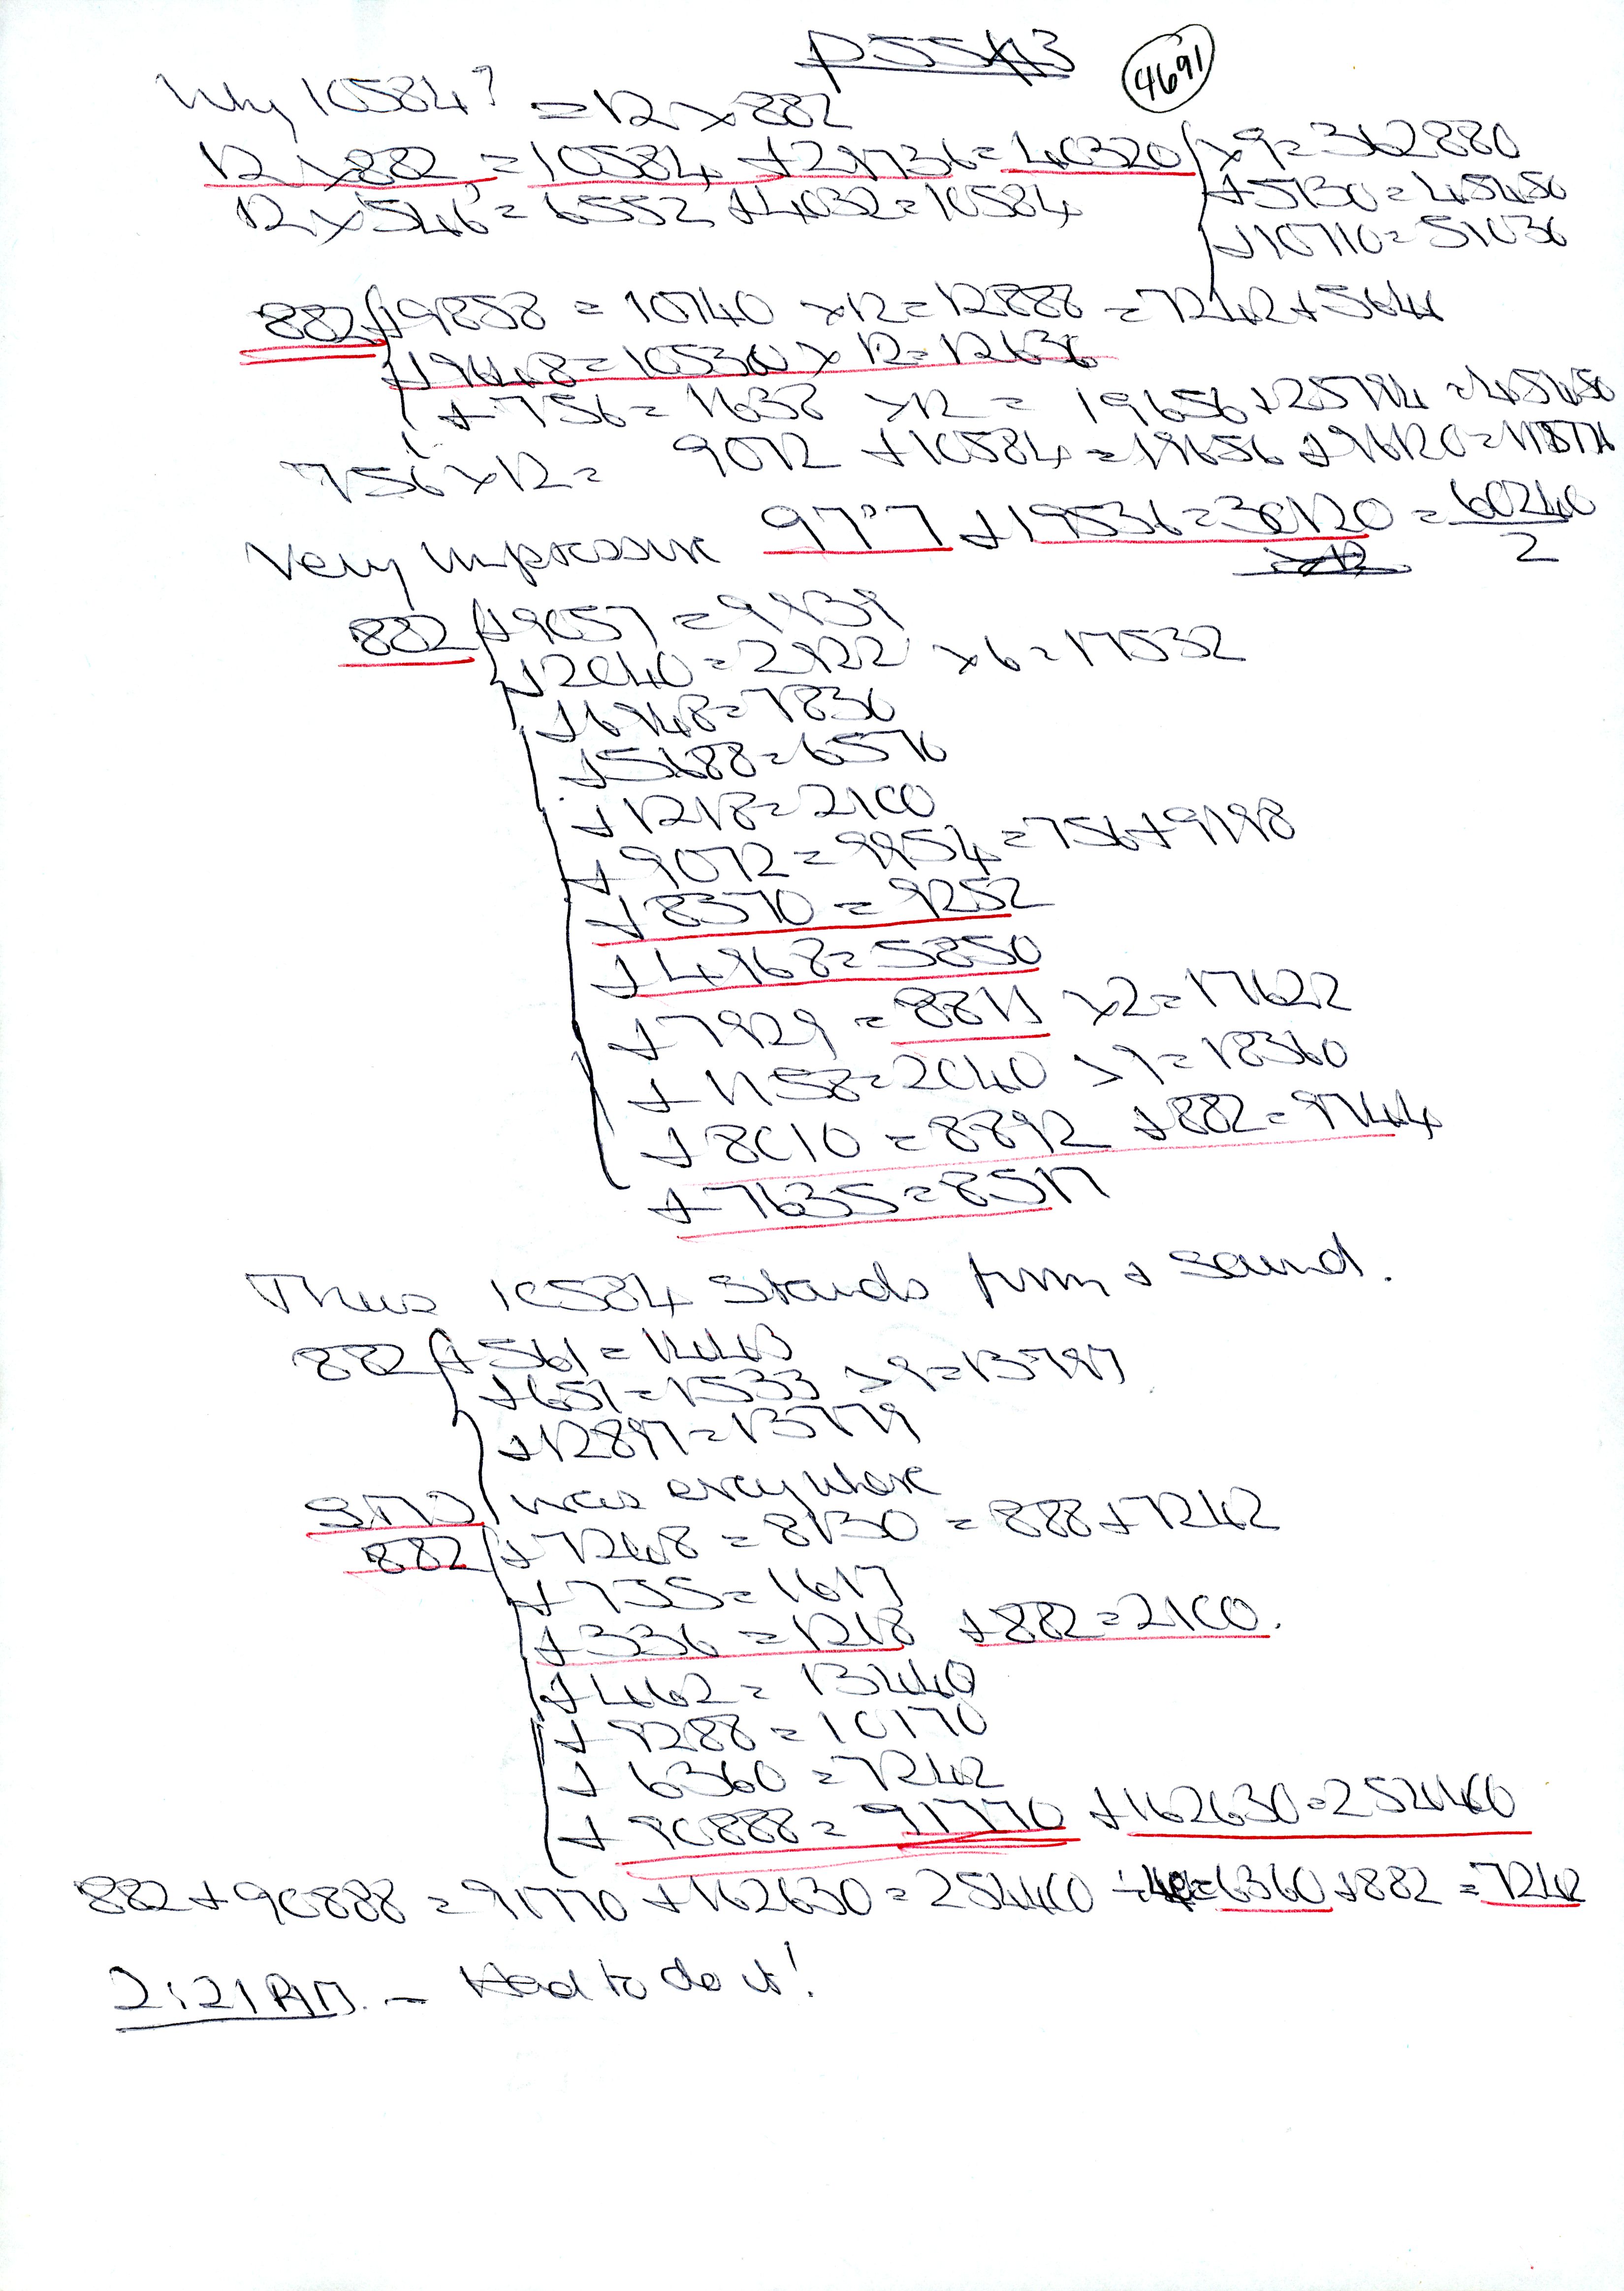 4691
Why 10584? = 12 x 882
12 x 882 = 10584 + 29736 = 40320 x 9 = 362880
+ 5130 = 45450
12 x 546 = 6552 + 4032 = 10584
+ 10710 = 51030
882 + 9858 = 10740 x 12 = 12888 = 7242 + 5646
+ 9648 = 10530 x 12 = 12636
+ 756 = 1638 x 12 = 19656 + 25794 = 45450
756 x 12 = 9072 + 10584 = 19656
Very impressive + 19536 = 30120 = 60240
2
882 + 9057 = 9939
+ 2040 = 2922 x 6 = 17532
+ 6948 = 7830
+ 5688 = 6570
+ 1218 = 2100
+ 9072 = 9954 = 756 + 9198
+ 8370 = 9252
+ 4968 = 5850
+ 7929 = 8811 x 2 = 17622
+ 1158 = 2040 > 9 = 18360
+ 8010 = 8892 + 882 = 9744
+ 7635 = 8517
Thus 10584 stands firm & sound.
882 + 561 = 1443
+ 651 = 1533 > 9 = 13797
+ 12897 = 13779
everywhere
882 + 7248 = 8130 = 888 + 7242
+ 735 = 1617
+ 336 = 1218 + 882 = 2100.
+ 462 = 13440
+ 9288 = 10170
+ 6360 = 7242
+ 90888 = 91770 + 162630 = 254400
882 + 90888 = 91770 + 162630 = 254400 ÷ 40 = 6360 + 882 = 7242
2:21 AM. - Had to do it!